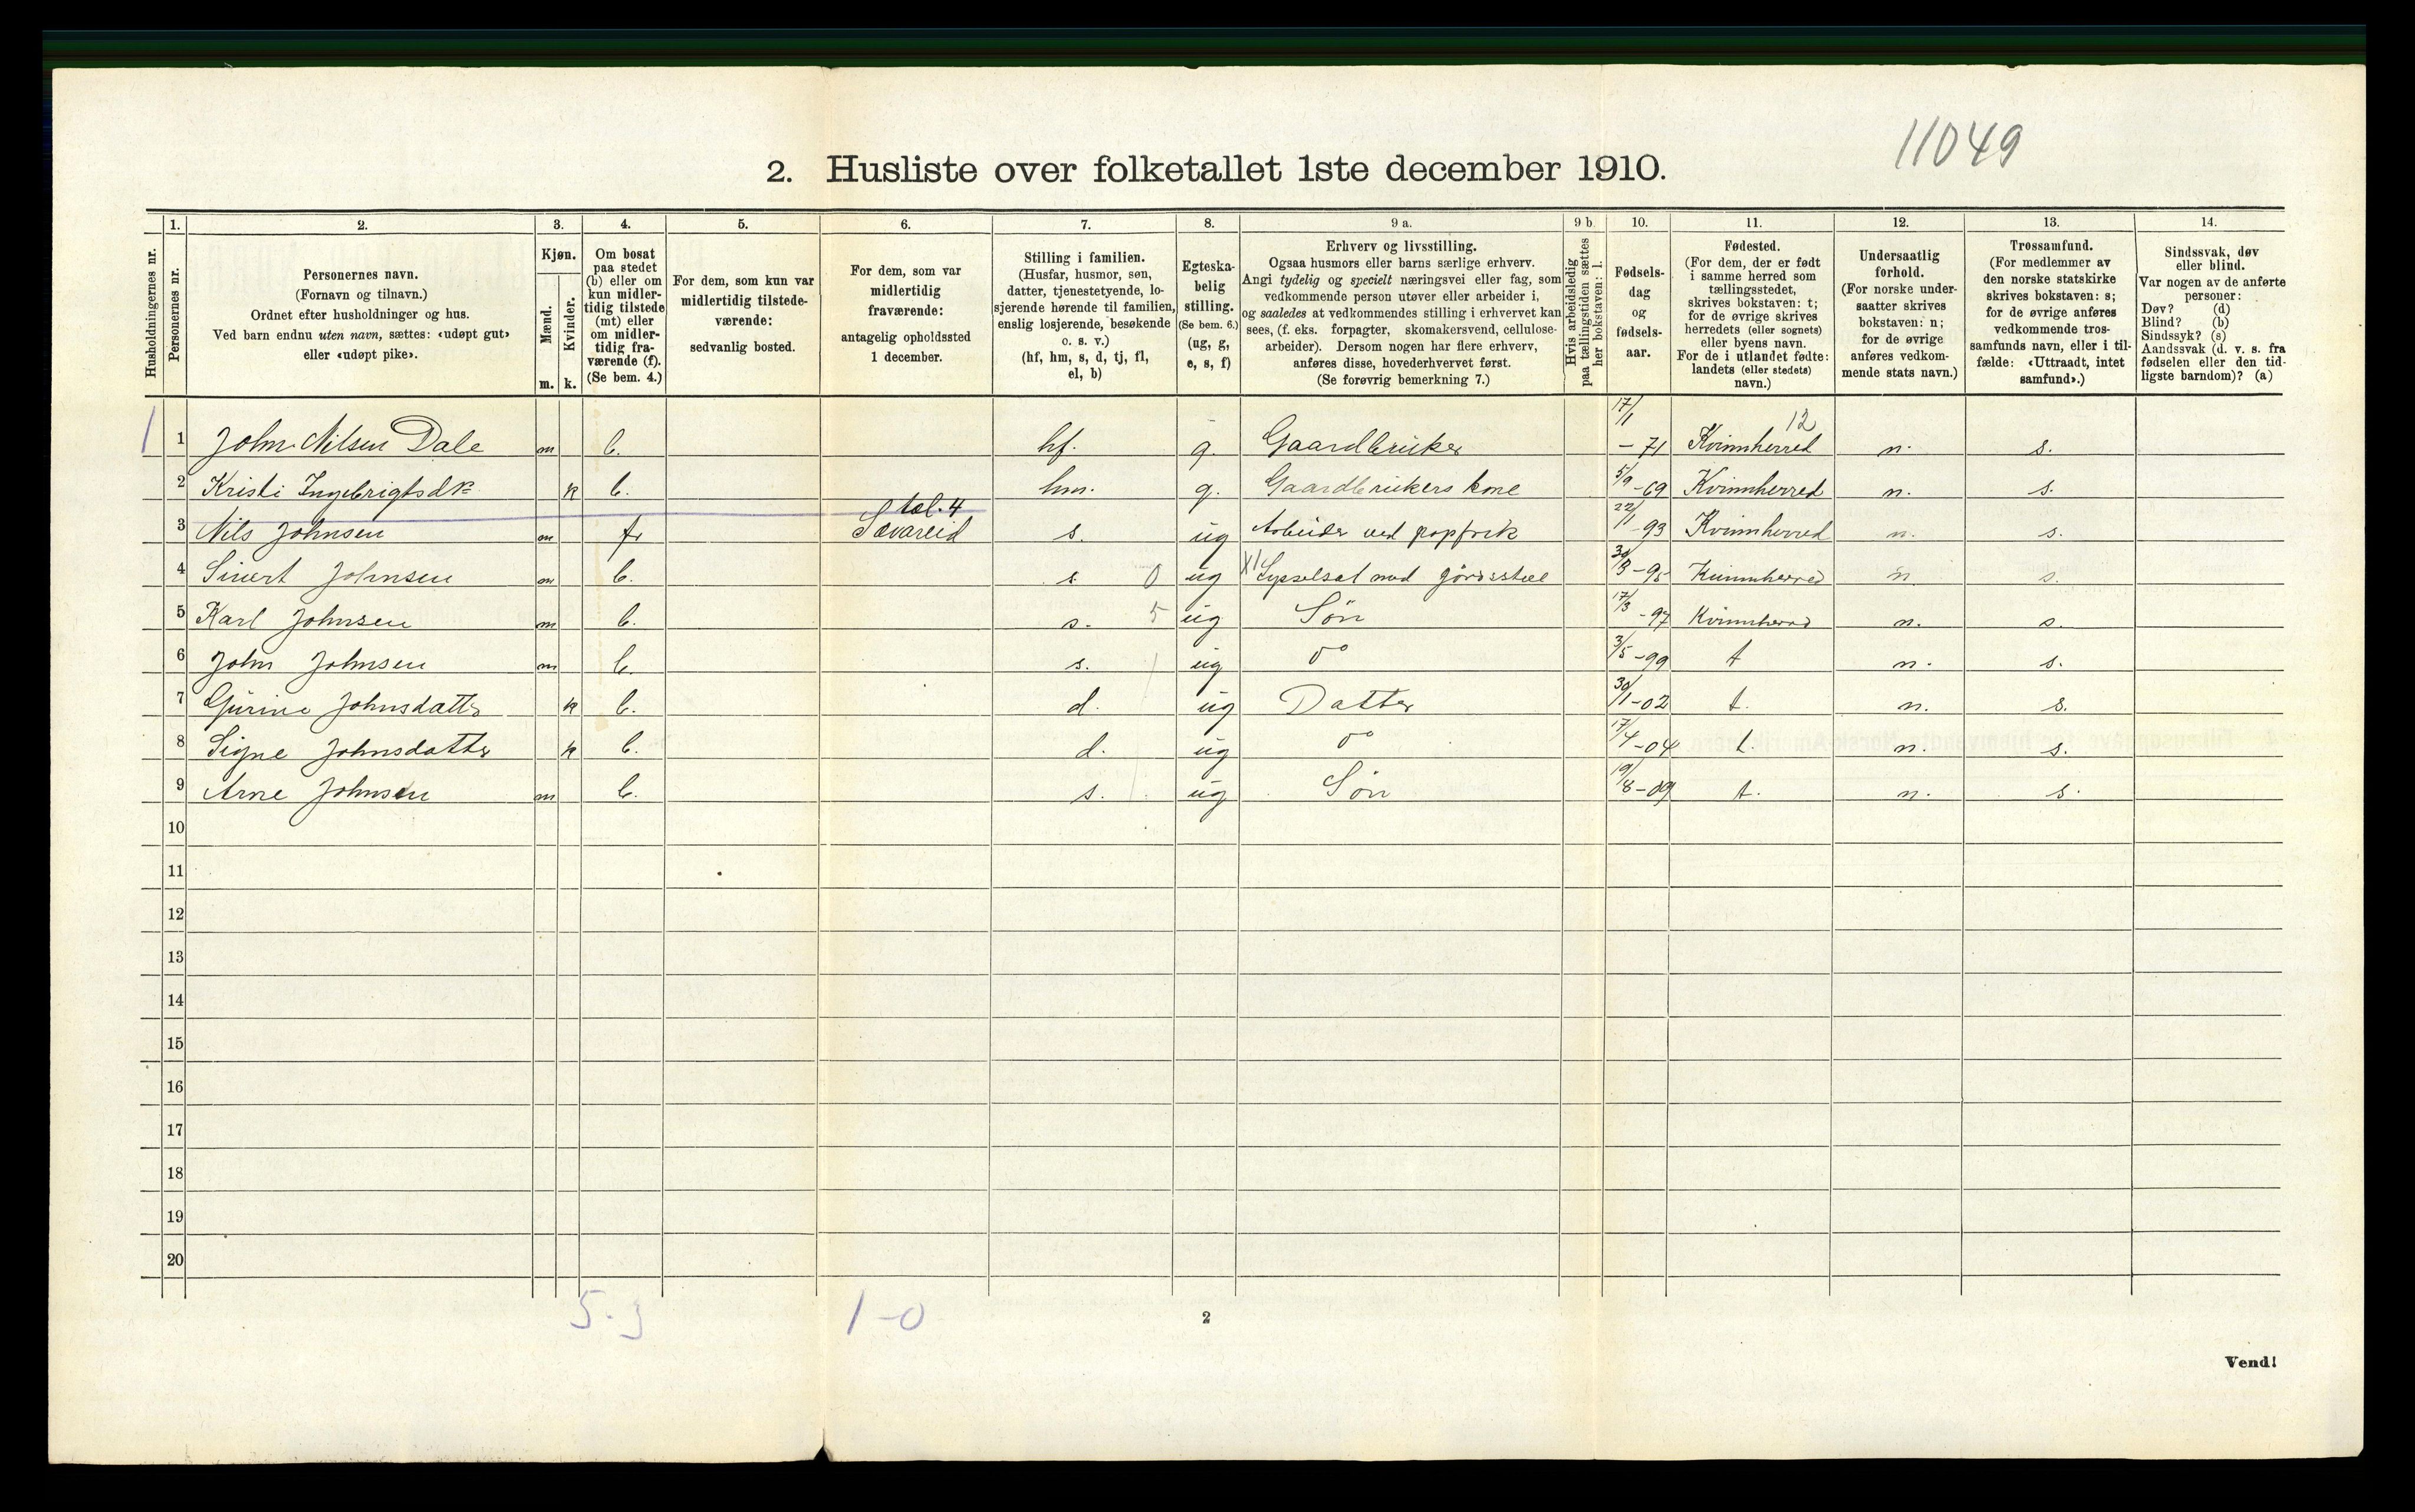 11049
2. Husliste over folketallet 1ste december 1910.
1. 2. 3. 4. 5. 6. 7. 8. 9 a. 9 b. 10. 11. 12. 13. 14.
Husholdningernes nr.
Personernes nr.
Personernes navn.
(Fornavn og tilnavn.)
Ordnet efter husholdninger og hus.
Ved barn endnu uten navn, sættes: «udøpt gut»
eller «udøpt pike».
Kjøn.
Mænd.
Kvinder.
m. k.
Om bosat
paa stedet
(b) eller om
kun midler-
tidig tilstede
(mt) eller
om midler-
tidig fra-
værende (f).
(Se bem. 4.)
For dem, som kun var
midlertidig tilstede-
værende:
sedvanlig bosted.
For dem, som var
midlertidig
fraværende:
antagelig opholdssted
1 december.
Stilling i familien.
(Husfar, husmor, søn,
datter, tjenestetyende, lo-
sjerende hørende til familien,
enslig losjerende, besøkende
o. s. v.)
(hf, hm, s, d, tj, fl,
el, b)
Egteska-
belig
stilling.
(Se bem. 6.)
(ug, g,
e, s, f)
Erhverv og livsstilling.
Ogsaa husmors eller barns særlige erhverv.
Angi tydelig og specielt næringsvei eller fag, som
vedkommende person utøver eller arbeider i,
og saaledes at vedkommendes stilling i erhvervet kan
sees, (f. eks. forpagter, skomakersvend, cellulose-
arbeider). Dersom nogen har flere erhverv,
anføres disse, hovederhvervet først.
(Se forøvrig bemerkning 7.)
Hvis arbeidsledig
paa tællingstiden sættes
her bokstaven: l.
Fødsels-
dag
og
fødsels-
aar.
Fødested.
(For dem, der er født
i samme herred som
tællingsstedet,
skrives bokstaven: t;
for de øvrige skrives
herredets (eller sognets)
eller byens navn.
For de i utlandet fødte:
landets (eller stedets)
navn.)
Undersaatlig
forhold.
(For norske under-
saatter skrives
bokstaven: n;
for de øvrige
anføres vedkom-
mende stats navn.)
Trossamfund.
(For medlemmer av
den norske statskirke
skrives bokstaven: s;
for de øvrige anføres
vedkommende tros-
samfunds navn, eller i til-
fælde: «Uttraadt, intet
samfund».)
Sindssvak, døv
eller blind.
Var nogen av de anførte
personer:
Døv? (d)
Blind? (b)
Sindssyk? (s)
Aandssvak (d. v. s. fra
fødselen eller den tid-
ligste barndom)? (a)
1 1 John Nilsen Dale m b. hf. g. Gaardbruker 17/1 - 71 Kvinnherred 12 n. s.
2 Kristi Ingebrigtsdtr k b. hm. g. Gaardbrukers kone 5/9 -69 Kvinnherred n. s.
tæl. 4
3 Nils Johnsen m fr Sævareid s. ug Arbeider ved papfrik 22/1 -93 Kvinnherred n. s.
4 Sivert Johnsen m b. s. 0 ug Sysselsat med 30/3 -95 Kvinnherred n s.
5 Karl Johnsen m b. s. 5 ug Søn 17/3 -97 Kvinnherred n. s.
6 John Johnsen m b. s. ug do 3/5 -99 t n. s.
7 Gurine Johnsdatter k b. d. ug Datter 30/1 -02 t. n. s.
8 Signe Johnsdatter k b. d. ug do 17/4 -04 t. n. s.
9 Arne Johnsen m b. s. ug Søn 19/8 -09 t. n. s.
10
11
12
13
14
15
16
17
18
19
20
5.3 1-0
2
Vend!